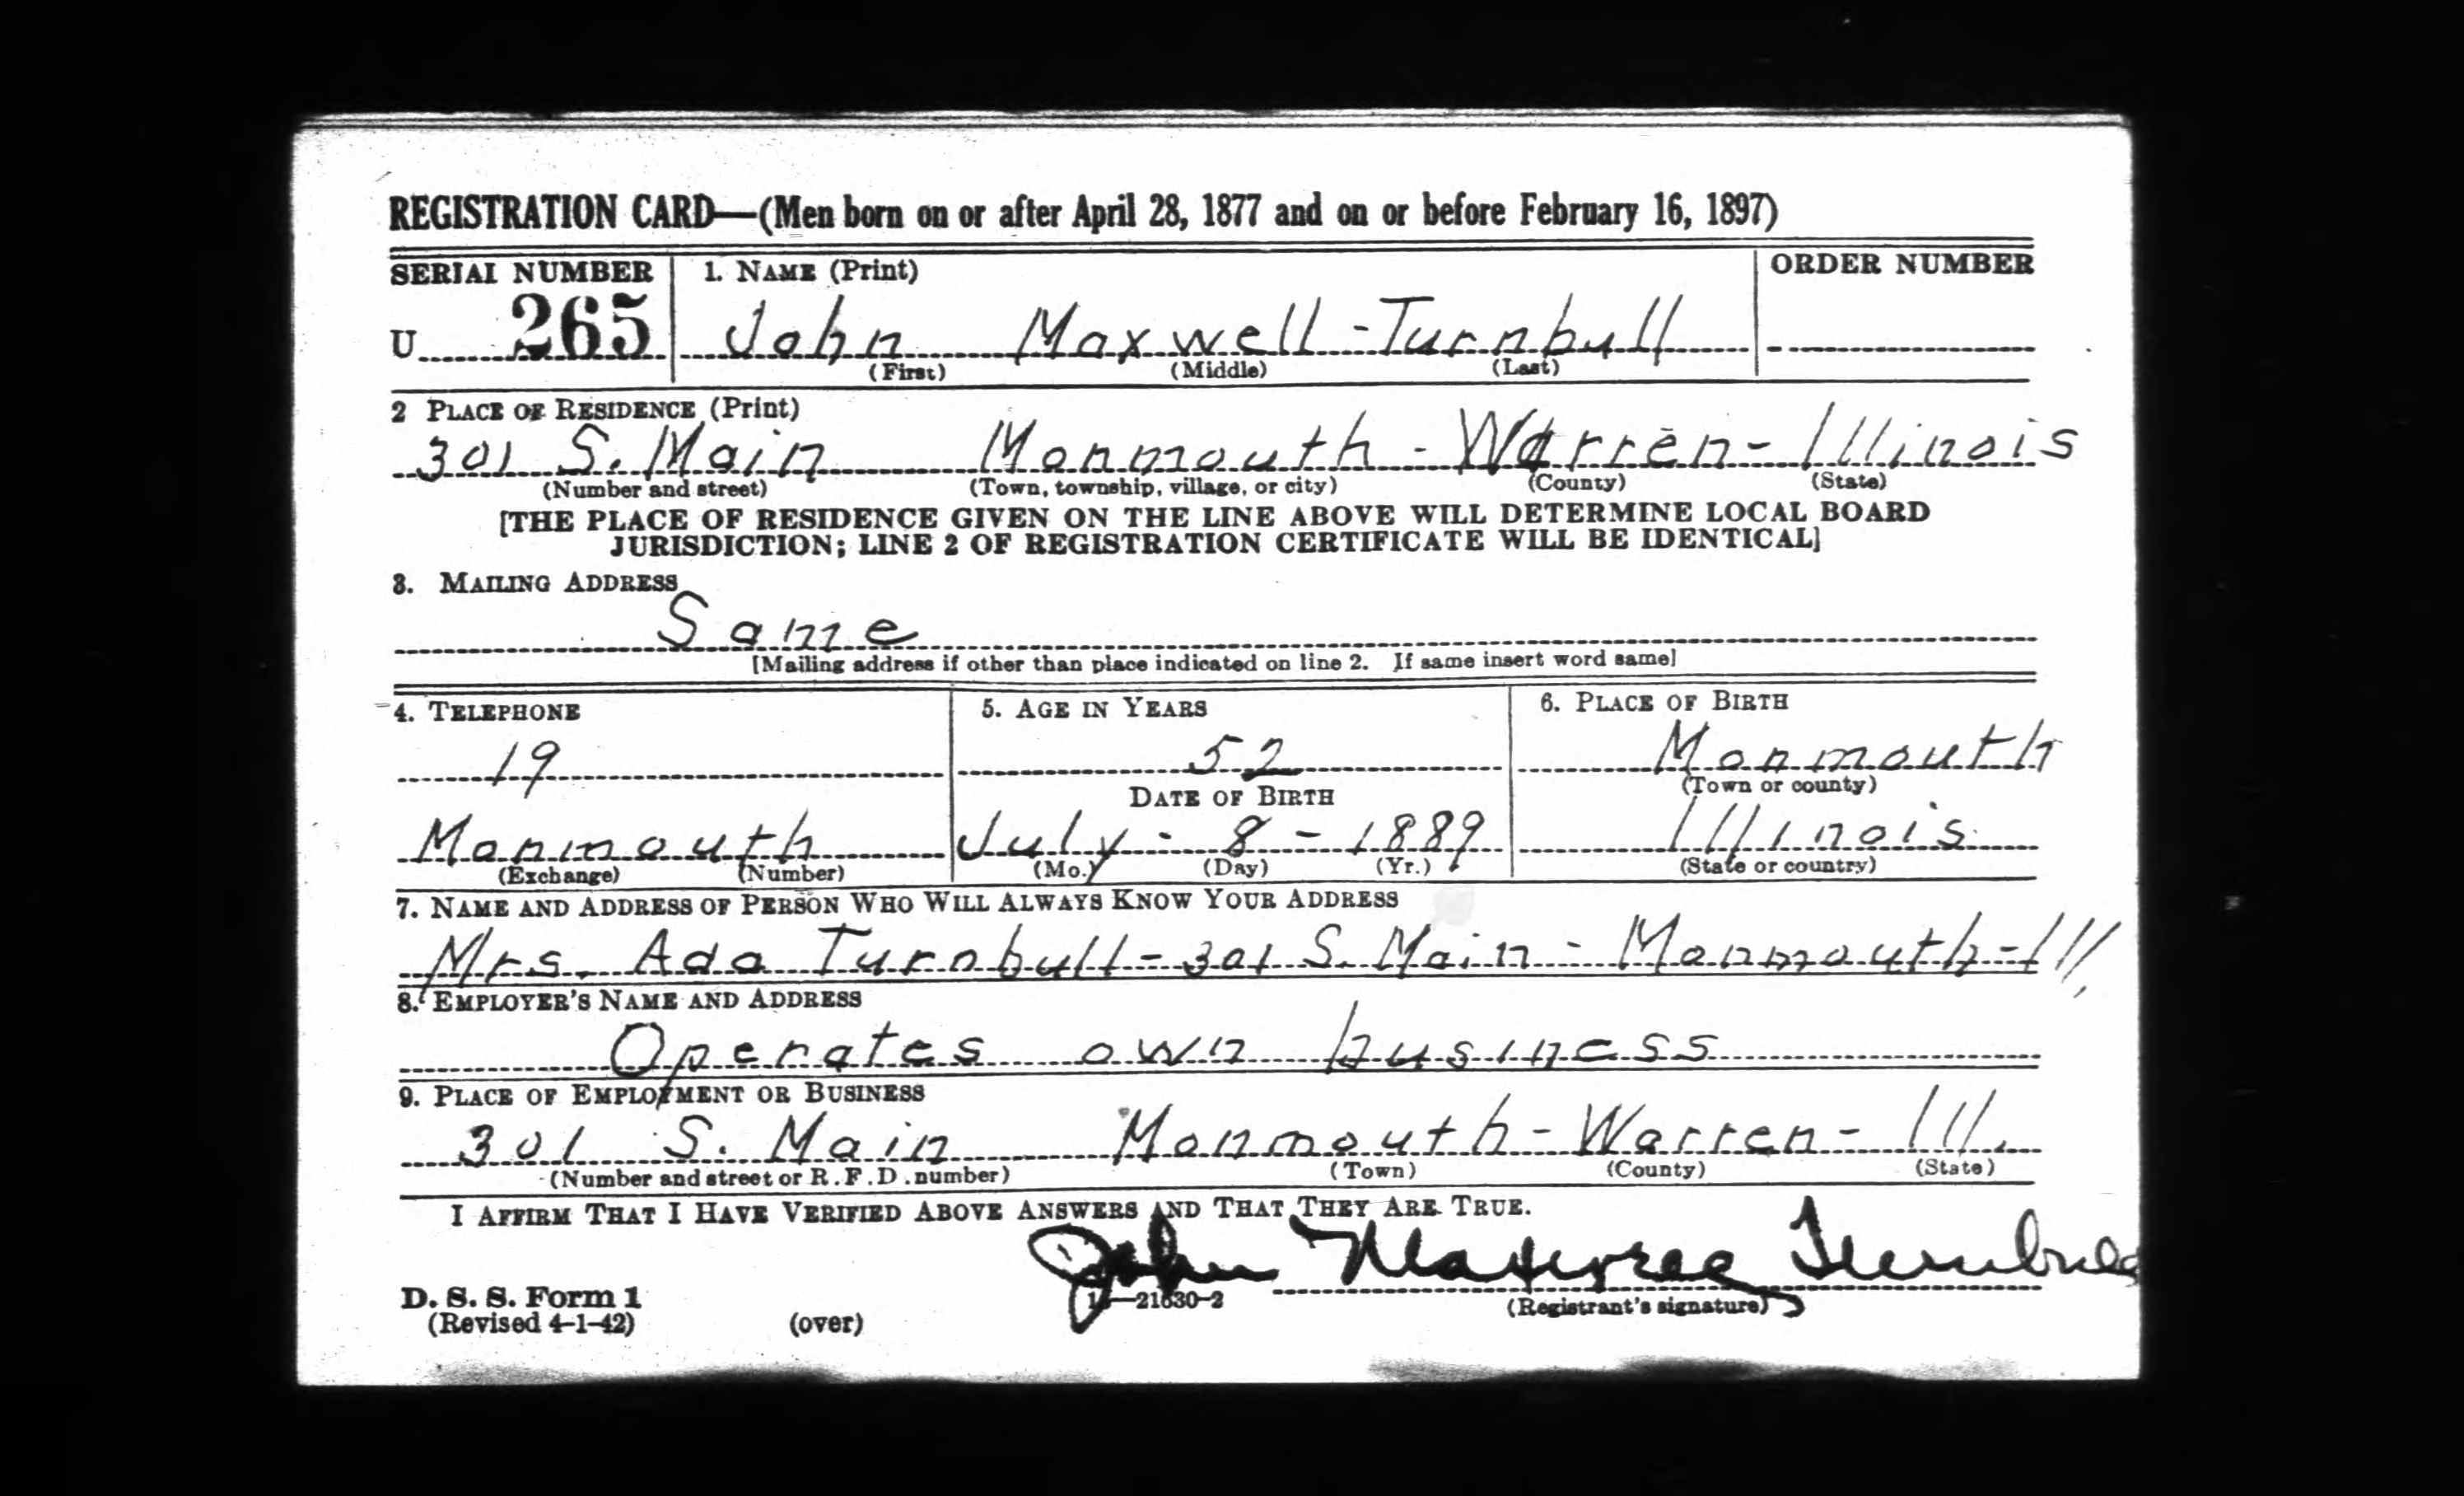 REGISTRATION CARD—(Men born on or after April 28, 1877 and on or before February 16, 1897)
SERIAL NUMBER 1. NAME (Print) ORDER NUMBER
U 265 John Maxwell-Turnbull
(First) (Middle) (Last)
2 PLACE OF RESIDENCE (Print)
301 S. Main Monmouth - Warren - Illinois
(Number and street) (Town, township, village, or city) (County) (State)
[THE PLACE OF RESIDENCE GIVEN ON THE LINE ABOVE WILL DETERMINE LOCAL BOARD
JURISDICTION; LINE 2 OF REGISTRATION CERTIFICATE WILL BE IDENTICAL]
3. MAILING ADDRESS
Same
[Mailing address if other than place indicated on line 2. If same insert word same]
4. TELEPHONE 5. AGE IN YEARS 6. PLACE OF BIRTH
19 52 Monmouth
DATE OF BIRTH (Town or county)
Monmouth July - 8 - 1889 Illinois
(Exchange) (Number) (Mo.) (Day) (Yr.) (State or country)
7. NAME AND ADDRESS OF PERSON WHO WILL ALWAYS KNOW YOUR ADDRESS
Mrs. Ada Turnbull - 301 S. Main - Monmouth - Ill.
8. EMPLOYER'S NAME AND ADDRESS
Operates own business
9. PLACE OF EMPLOYMENT OR BUSINESS
301 S. Main Monmouth - Warren - Ill.
(Number and street or R.F.D. number) (Town) (County) (State)
I AFFIRM THAT I HAVE VERIFIED ABOVE ANSWERS AND THAT THEY ARE TRUE.
John Maxwell Turnbull
D. S. S. Form 1 16—21630-2 (Registrant's signature)
(Revised 4-1-42) (over)